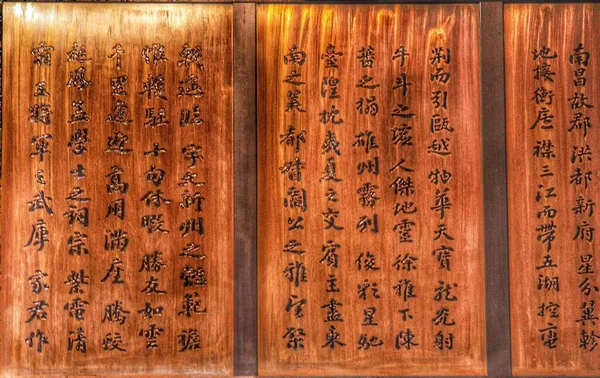 南昌故郡洪都新府星分翼軫
地接衡廬襟三江而帶五湖控蠻
荊而引甌越物華天寶龍光射
牛斗之墟人傑地靈徐稚下陳
蕃之榻雄州霧列俊彩星馳
臺隍枕夷夏之交賓主盡東
南之美都督閻公之雅望棨
戟遙臨宇文新州之懿範襜
帷暫駐十旬休暇勝友如雲
千里逢迎高朋滿座騰蛟
起鳳孟學士之詞宗紫電清
霜王將軍之武庫家君作